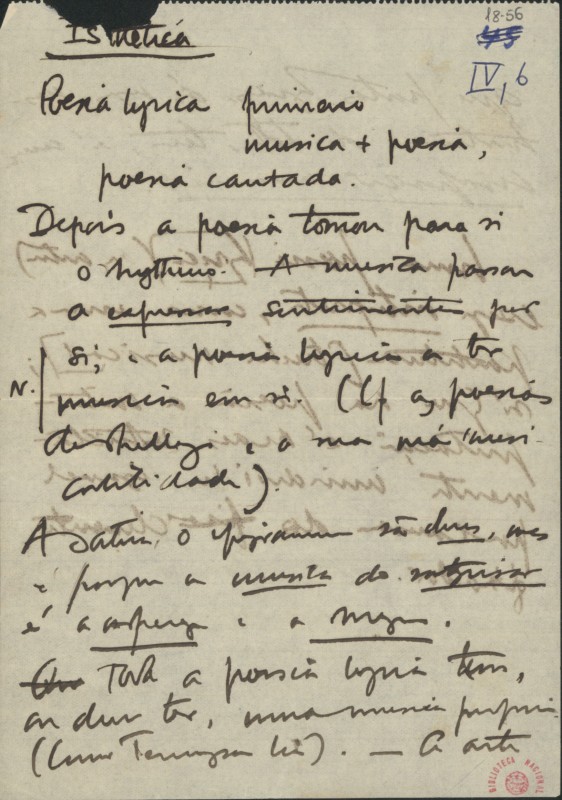 18-56
IV, 6
Esthetica
Poesia lyrica primario
musica + poesia,
poesia cantada.
Depois a poesia tomou para si
o rhythmo. A musica passou
a expressar sentimentos per
si, e a poesia lyrica a ter
N. musica em si. (Cf as poesias
de Shelley e a sua má musi-
calidade).
A satira, o epigramma são
é porque a musica do
é a e a
Toda a poesia lyrica tem,
ou deve ter, uma musica propria
(como Tennyson). — A arte
BIBLIOTECA NACIONAL